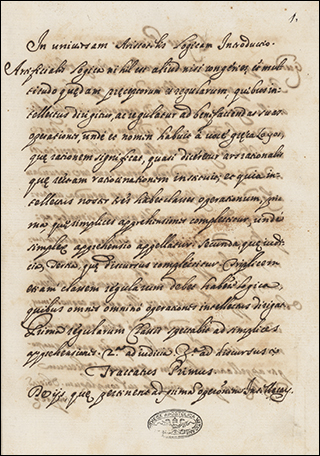 1.
In universam Aristotelis Logicam Introductio.
Artificialis Logica nihil est aliud nisi congeries, et multi
tudo quædam præceptorum, ac regularum, quibus in
tellectus dirigitur, ac regulatur ad benefaciendas suas
operationes, unde et nomen habuit a
que rationem significat, quasi dicetur ars rationalis
quæ ad ratiocinationem et quia in
tellectus noster tres habet suas operationum, pri
mo quæ simplices apprehensiones complectitur, unde
simplex apprehensio appellatur Secunda, quæ iudi
cia, Tertia, quæ discursus complectitur. Triplicem
etiam classem regularum debet habere Logica,
quibus omnis omnino operationes intellectus dirigat.
Prima regularum Classis spectabit ad simplices
apprehensiones. 2.a ad iudicia 3.a ad discursus
Tractatus Primus
De iis, quæ pertinent ad primam operationem Intellectus.